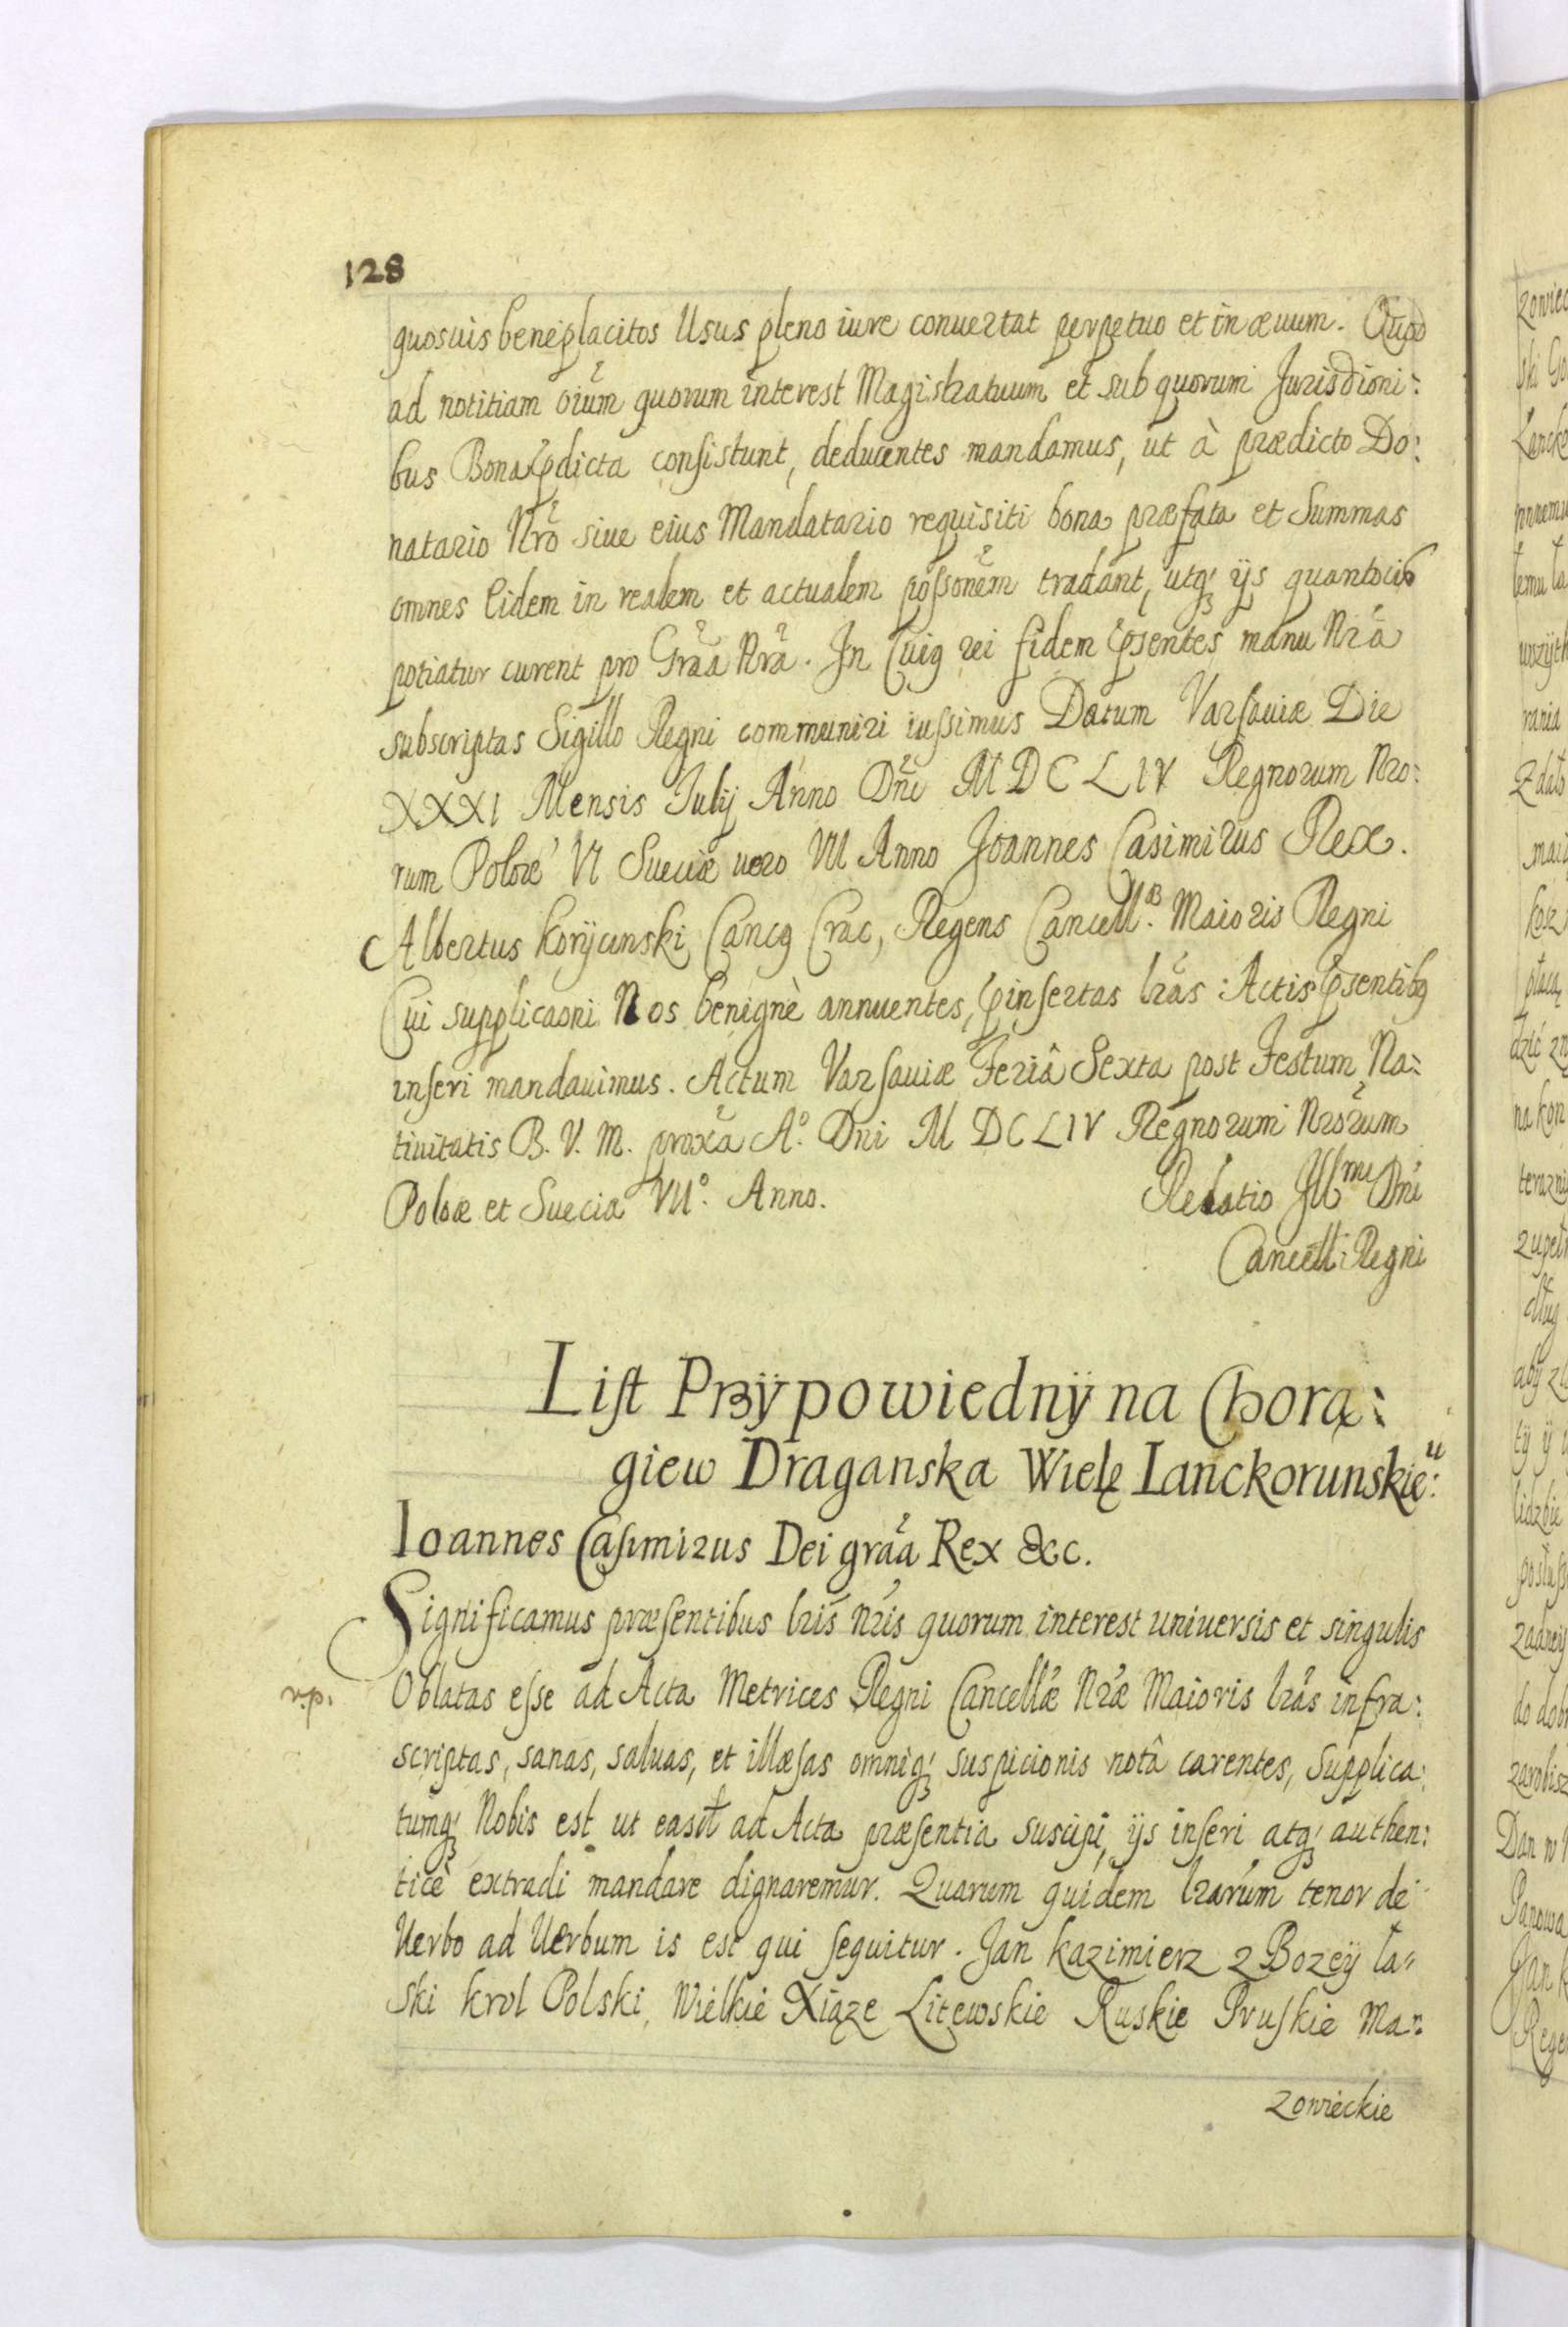 128
quosuis beneplacitos Usus pleno iure conuertat perpetuo et in æuum. Quod
ad notitiam oium quorum interest Magistratuum et sub quorum Jurisdioni:
bus Bona pdicta consistunt, deducentes mandamus, ut à prædicto Do:
natario Nro siue eius Mandatario requisiti bona præfata et Summas
omnes Eidem in realem et actualem possonem tradant, utq; ijs quantocius
potiatur curent pro Graa Nra. In Cuig rei fidem psentes manu Nra
subscriptas Sigillo Regni communiri iussimus Datum Varsauiæ Die
XXXI Mensis Julij Anno Dni MDCLIV Regnorum Nro:
rum Poloæ VI Sueciæ uero VII Anno Joannes Casimirus Rex.
Albertus Koryćinski Cancg Crac, Regens Cancellæ. Maioris Regni
Cui supplicaoni Nos benignè annuentes, pinsertas lras Actis psentibg
inseri mandauimus. Actum Varsauiæ Feriâ Sexta post Festum Na:
tiuitatis B. V. M. proxa Ao. Dni MDCLIV Regnorum Nrorum
Poloæ et Suecia VIIo. Anno. Relatio Illmi Dni
Cancell: Regni
List Przÿpowiednÿ na Chorą:
giew Draganska Wielę Lanckorunskieu:
Ioannes Casimirus Dei graa Rex &c.
Significamus præsentibus lris nris quorum interest uniuersis et singulis
v.p.
Oblatas esse ad Acta Metrices Regni Cancellæ Nræ Maioris lras infra:
scriptas, sanas, saluas, et illæsas omniq; suspicionis notâ carentes, Supplica:
tumq; Nobis est ut easd ad Acta præsentia suscipi, ijs inseri atq; authen:
ticè extradi mandare dignaremur. Quarum quidem lrarum tenor de
Uerbo ad Uerbum is est qui sequitur. Jan Kazimierz z Bozeÿ ła,,
ski krol Polski, Wielkie Xiąze Litewskie Ruskie Pruskie Ma:
zowieckie